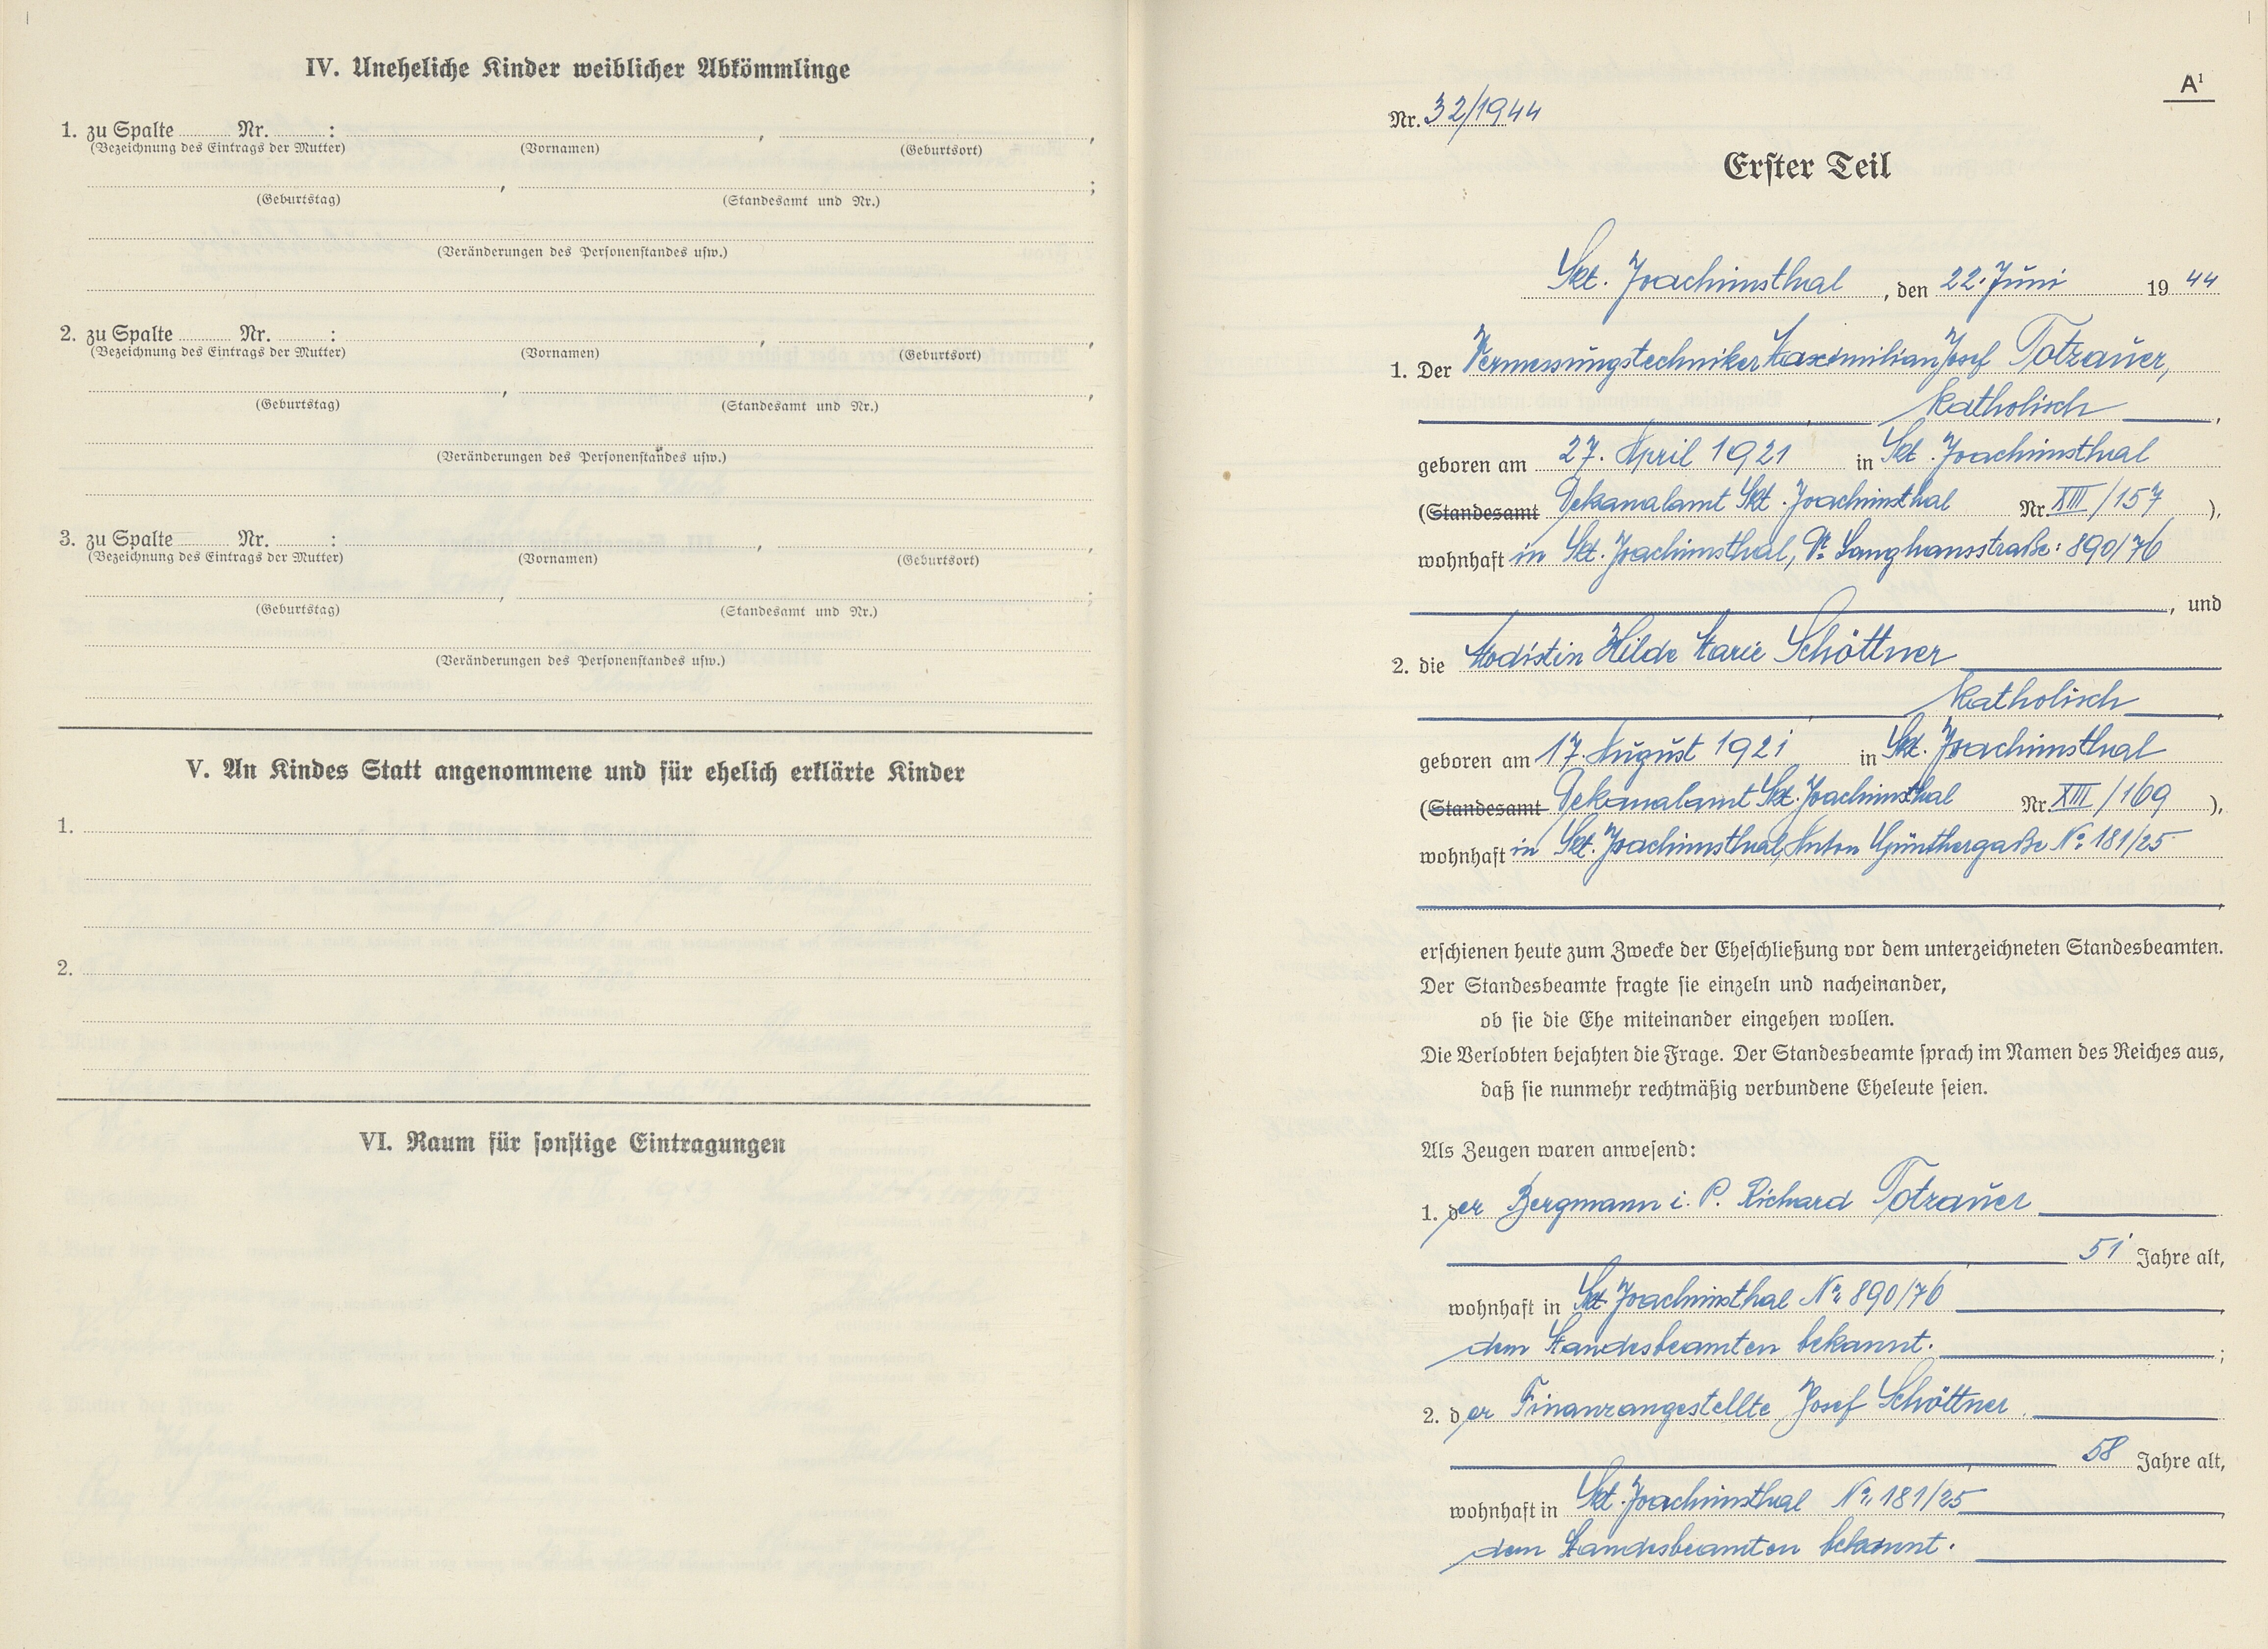 IV. Uneheliche Kinder weiblicher Abkömmlinge
1. zu Spalte ........ Nr. ........ : ........ , ........ ,
(Bezeichnung des Eintrags der Mutter) (Vornamen) (Geburtsort)
........ , ........ ;
(Geburtstag) (Standesamt und Nr.)
(Veränderungen des Personenstandes usw.)
2. zu Spalte ........ Nr. ........ : ........ , ........ ,
(Bezeichnung des Eintrags der Mutter) (Vornamen) (Geburtsort)
........ , ........ ,
(Geburtstag) (Standesamt und Nr.)
(Veränderungen des Personenstandes usw.)
3. zu Spalte ........ Nr. ........ : ........ , ........ ,
(Bezeichnung des Eintrags der Mutter) (Vornamen) (Geburtsort)
........ , ........ ;
(Geburtstag) (Standesamt und Nr.)
(Veränderungen des Personenstandes usw.)
V. An Kindes Statt angenommene und für ehelich erklärte Kinder
1.
2.
VI. Raum für sonstige Eintragungen
A1
Nr. 32/1944
Erster Teil
Skt. Joachimsthal, den 22. Juni 1944
1. Der Vermessungstechniker Maximilian Josef Totzauer,
katholisch,
geboren am 27. April 1921 in Skt. Joachimsthal
(Standesamt Dekanalamt Skt. Joachimsthal Nr. XIII/157),
wohnhaft in Skt. Joachimsthal, Dr. Langhansstraße: 890/76
, und
2. die Modistin Hilde Marie Schöttner
katholisch,
geboren am 17. August 1921 in Skt. Joachimsthal
(Standesamt Dekanalamt Skt. Joachimsthal Nr. XIII/169),
wohnhaft in Skt. Joachimsthal, Anton Günthergaße No 181/25
erschienen heute zum Zwecke der Eheschließung vor dem unterzeichneten Standesbeamten.
Der Standesbeamte fragte sie einzeln und nacheinander,
ob sie die Ehe miteinander eingehen wollen.
Die Verlobten bejahten die Frage. Der Standesbeamte sprach im Namen des Reiches aus,
daß sie nunmehr rechtmäßig verbundene Eheleute seien.
Als Zeugen waren anwesend:
1. der Bergmann i. P. Richard Totzauer
51 Jahre alt,
wohnhaft in Skt. Joachimsthal No 890/76,
dem Standesbeamten bekannt. ;
2. der Finanzangestellte Josef Schöttner
58 Jahre alt,
wohnhaft in Skt. Joachimsthal No 181/25,
dem Standesbeamten bekannt.